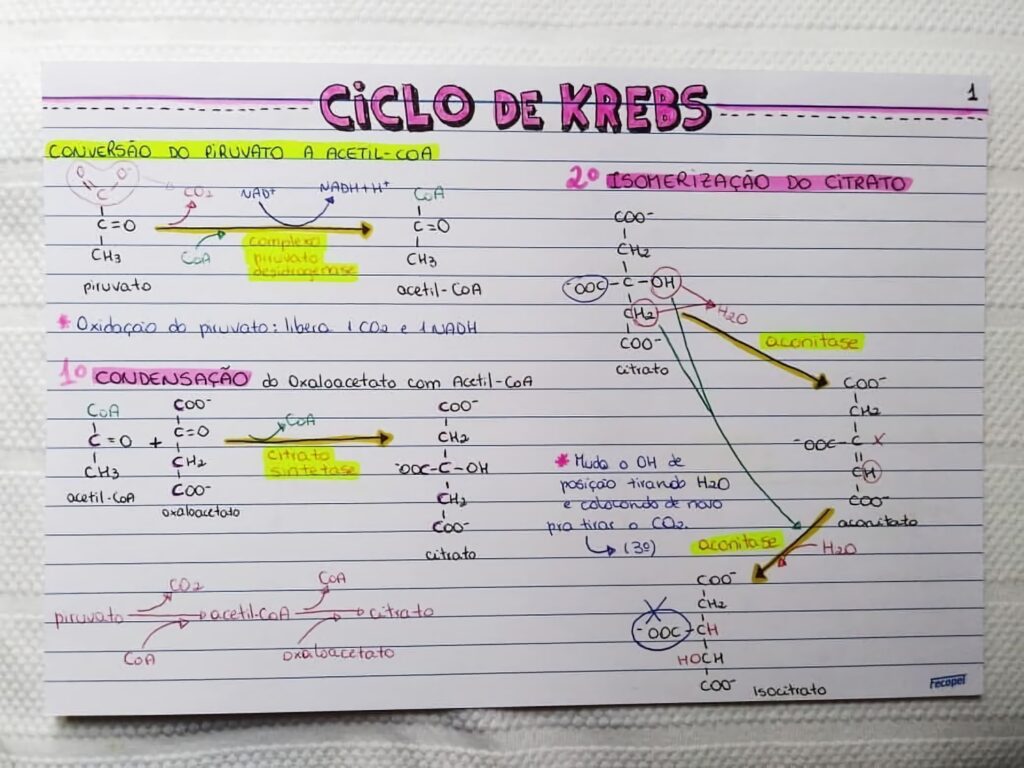 CICLO DE KREBS
1
CONVERSÃO DO PIRUVATO A ACETIL-COA
O O⁻
C
C=O
CH3
piruvato
CO2
NAD⁺
NADH+H⁺
CoA
complexo
piruvato
desidrogenase
CoA
C=O
CH3
acetil-CoA
* Oxidação do piruvato: libera 1 CO2 e 1 NADH
1º CONDENSAÇÃO do Oxaloacetato com Acetil-CoA
CoA
C=O
CH3
acetil-CoA
+
COO⁻
C=O
CH2
COO⁻
oxaloacetato
CoA
citrato
sintetase
COO⁻
CH2
⁻OOC-C-OH
CH2
COO⁻
citrato
CO2
CoA
piruvato
acetil-CoA
citrato
CoA
oxaloacetato
2º ISOMERIZAÇÃO DO CITRATO
COO⁻
CH2
⁻OOC-C-OH
CH2
COO⁻
citrato
H2O
aconitase
COO⁻
CH2
⁻OOC-C X
CH
COO⁻
aconitato
* Muda o OH de
posição tirando H2O
e colocando de novo
pra tirar o CO2.
(3º)
aconitase
H2O
COO⁻
CH2
⁻OOC-CH
HOCH
COO⁻
Isocitrato
Fecopel